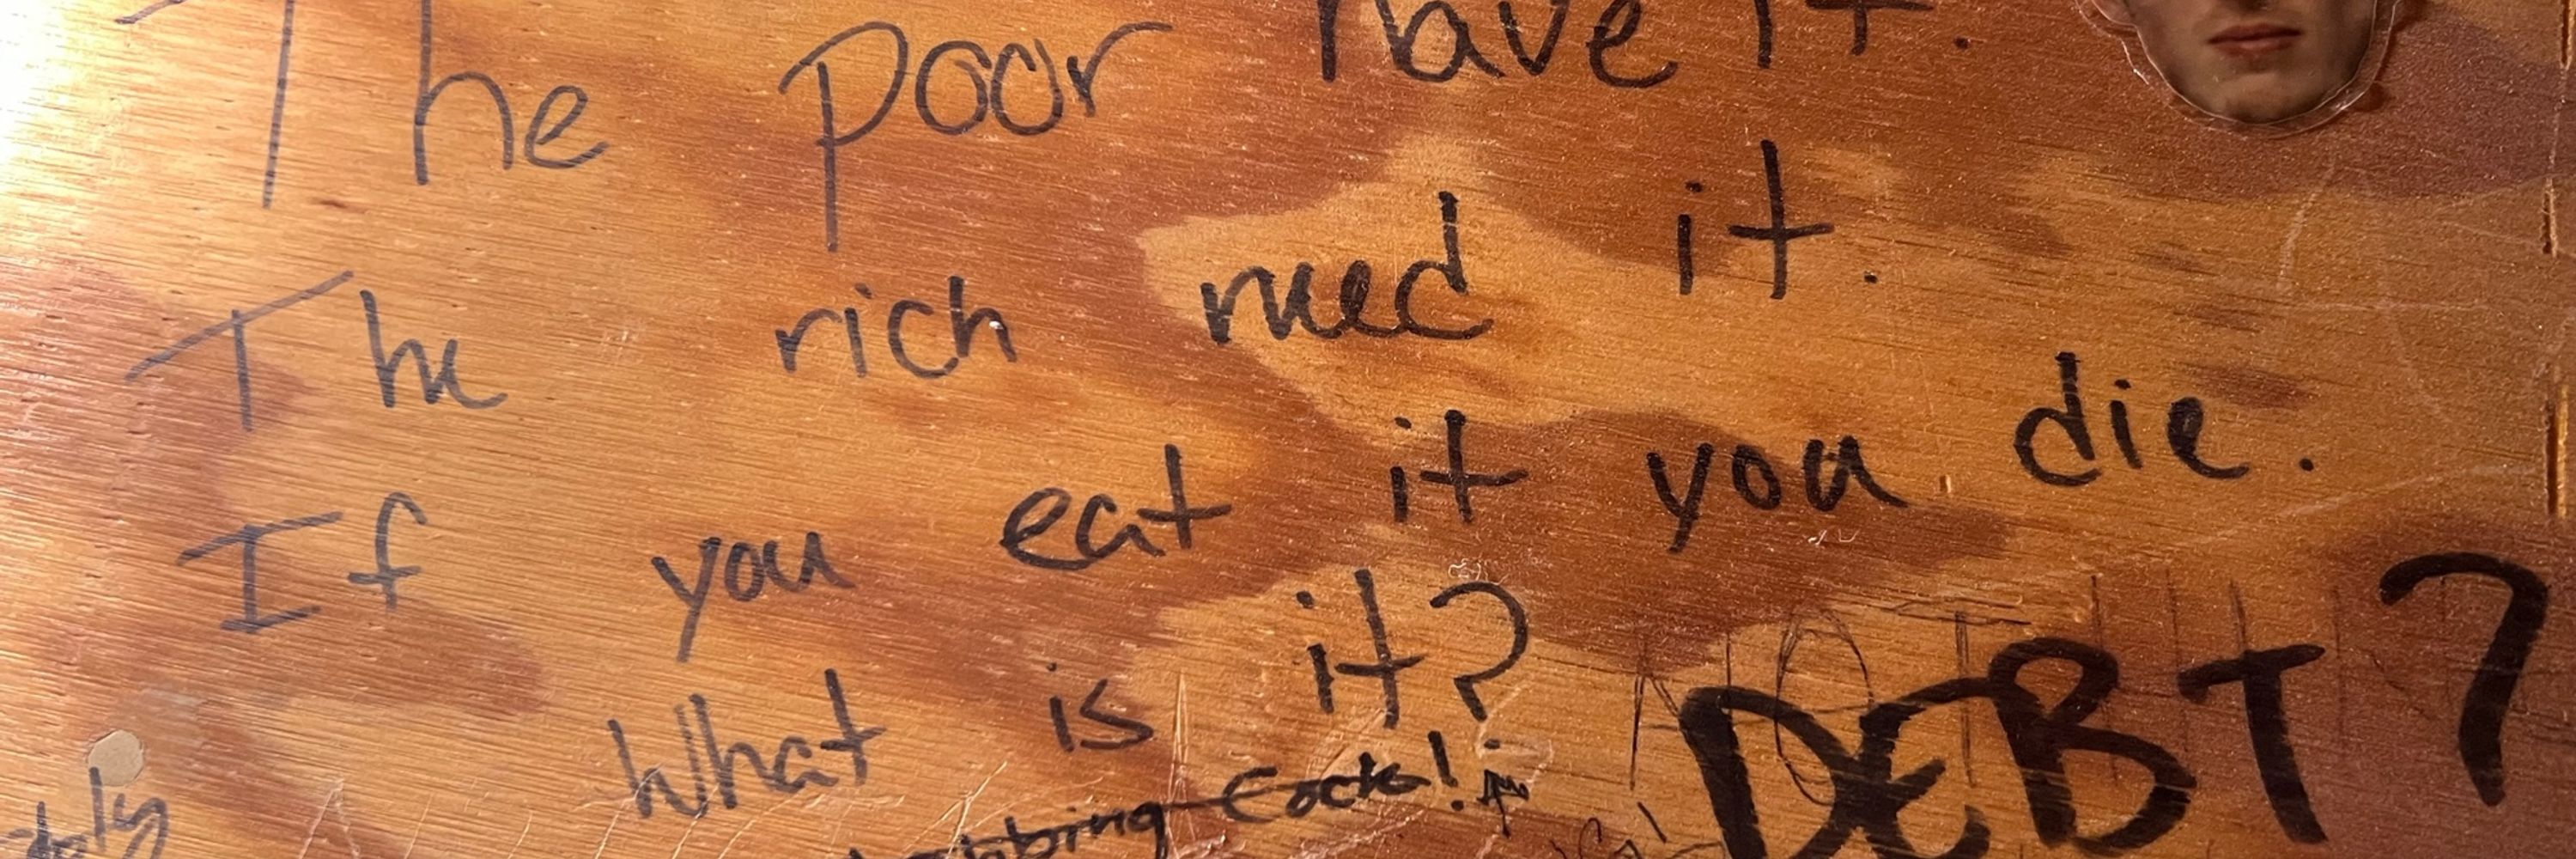 The poor have it.
The rich need it.
If you eat it you die.
What is it?
DEBT?